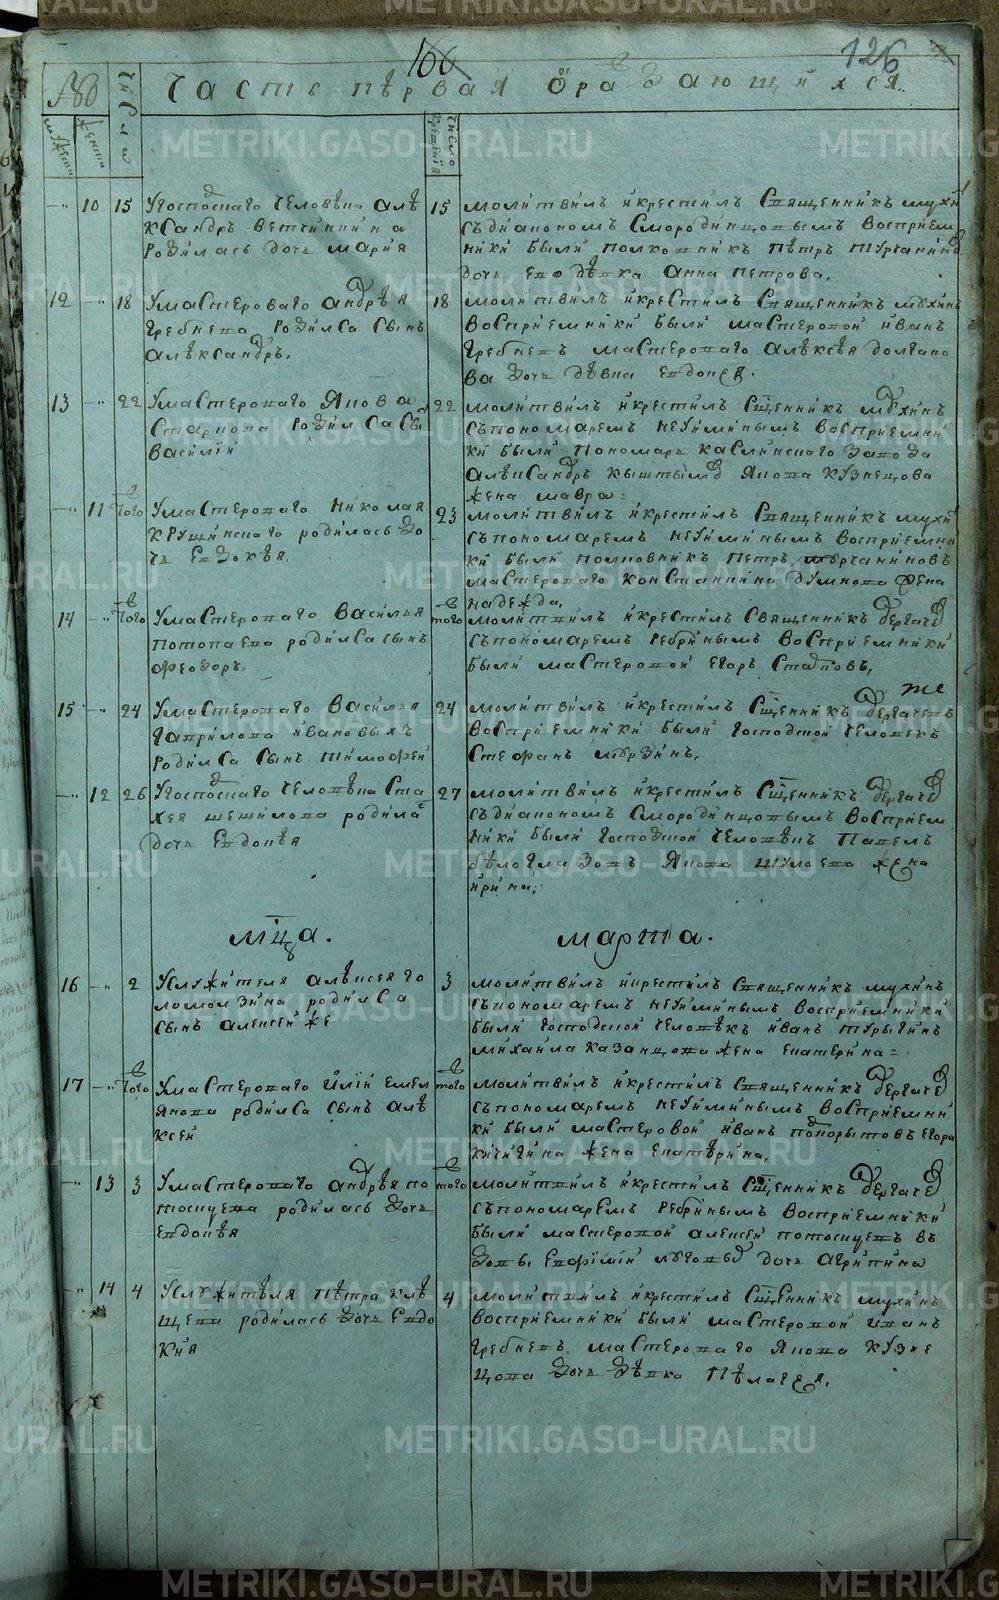 126
№
Числа
Часть пѣрвая ѡраждающихся.
мужеска
женска
Число
крещенія
10 15 Угосподского человѣка алѣ
ксандръ ветчинина
родилась дочь мария
15 молитвилъ икрестилъ Священникъ мухи
съдиакономъ Смородинцовымъ Восприем
ники были полковникъ пѣтръ турчанинов
дочь ево дѣвка анна петрова.
12 18 Умастероваго андрѣя
гребнева родилса Сынъ
алѣксандръ.
18 молитвилъ икрестилъ Священникъ мухинъ
восприемники были мастеровой иванъ
гребневъ мастероваго алѣксѣя долгано
ва дочь дѣвка евдокея.
13 22 Умастероваго Якова
Старкова родилса Сынъ
василий
22 молитвилъ икрестилъ Сщенникъ мухинъ
съпономаремъ неуиминымъ восприемни
ки были пономарь каслинскаго завода
алѣксандръ кыштымов Якова кузнецова
жена мавра:
11 того Умастероваго николая
крушинского родилась до
чь евдокѣя.
23 молитвилъ икрестилъ Священникъ мухи
съпономаремъ неуиминымъ восприемни
ки были полковникъ петръ турчаниновъ
мастероваго константина думнова жена
надежда,
14 того Умастероваго василья
потопаева родилса сынъ
феодоръ.
того молитвилъ икрестилъ Священникъ дергаче
съпономаремъ ребринымъ восприемники
были мастеровой егоръ
15 24 Умастероваго василья
гаврилова ивановыхъ
родилса Сынъ тимофей
24 молитвилъ икрестилъ Сщенникъ дергачевъ же
восприемники были господской человекъ
Стефанъ мурзинъ.
12 26 Угосподского человѣка Ста
хея шешилова родилас
дочь евдокѣя
27 молитвилъ икрестилъ Сщенникъ дергаче
съдиакономъ Смородинцовымъ восприем
ники были господской человѣкъ павелъ
бѣлоглазовъ Якова жена
ирина;
мѣца. марта.
16 2 Услужителя алѣксея го
ломолзина родилса
сынъ алексей же
3 молитвилъ икрестилъ Священникъ мухинъ
съпономаремъ неуиминымъ восприемники
были господской человѣкъ иванъ турыгинъ
михаила казанцова жена екатерина
17 того Умастероваго Илїи емел
янова родилса сынъ алѣ
ксей
того молитвилъ икрестилъ Священникъ дергаче
съпономаремъ неуиминымъ восприемни
ки были мастеровой иванъ подкорытовъ егора
кичигина жена екатѣрина,
13 3 Умастероваго андрѣя по
тоскуева родилась дочь
евдокѣя
того молитвилъ икрестилъ Сщенникъ дергаче
съпономаремъ ребринымъ восприемники
были мастеровой алексей потоскуевъ в
довы евфимии луговых дочь агрипина
14 4 Услужителя пѣтра клѣ
щева родилась дочь евдо
кия
4 молитвилъ икрестилъ Сщенникъ мухинъ
восприемники были мастеровой иванъ
гребневъ мастероваго Якова кузне
цова дочь дѣвка пѣлагея.
METRIKI.GASO-URAL.RU